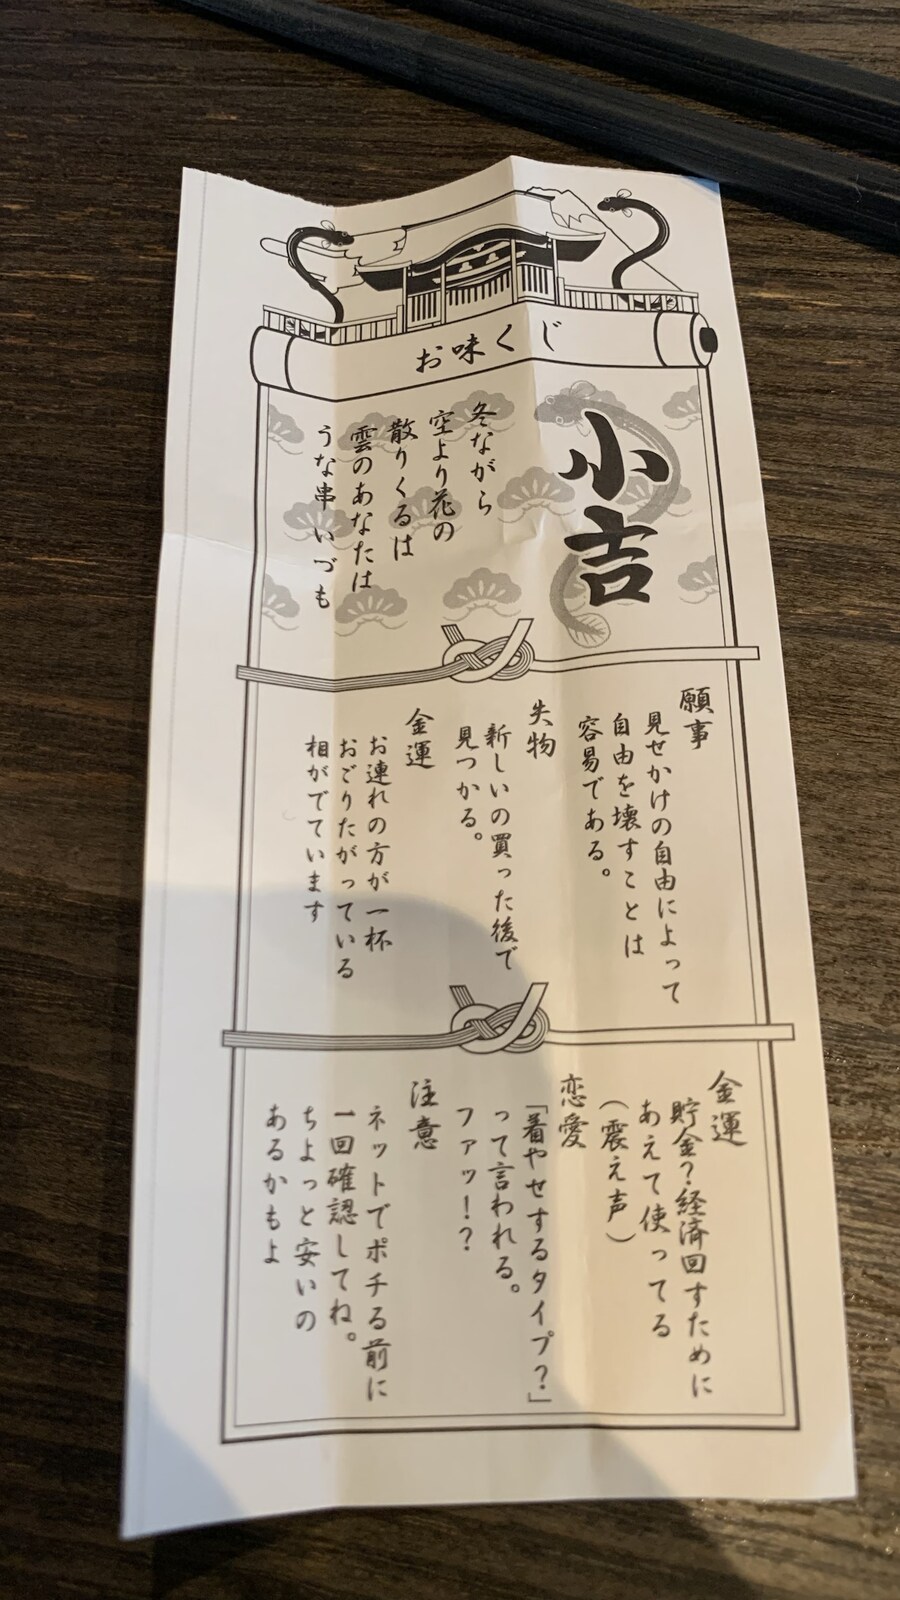 お味くじ
小吉
冬ながら
空より花の
散りくるは
雲のあなたは
うな串いづも
願事
見せかけの自由によって
自由を壊すことは
容易である。
失物
新しいの買った後で
見つかる。
金運
お連れの方が一杯
おごりたがっている
相がでています
金運
貯金?経済回すために
あえて使ってる
(震え声)
恋愛
「着やせするタイプ?」
って言われる。
ファッ!?
注意
ネットでポチる前に
一回確認してね。
ちょっと安いの
あるかもよ